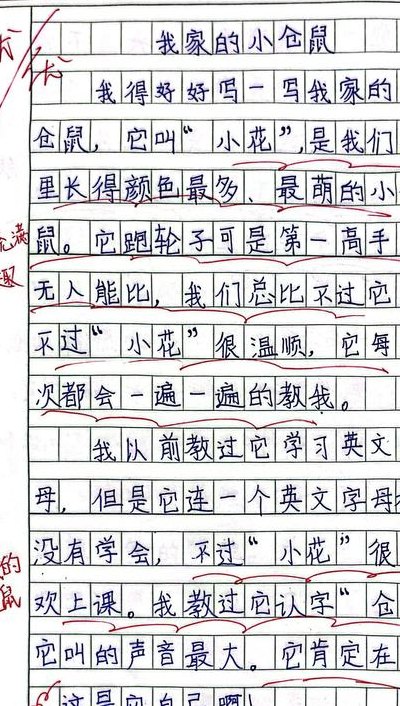 优
优
我家的小仓鼠
我得好好写一写我家的
仓鼠，它叫“小花”，是我们
里长得颜色最多、最萌的小
鼠。它跑轮子可是第一高手
充满
趣
无人能比，我们总比不过它
不过“小花”很温顺，它每
次都会一遍一遍的教我。
我以前教过它学习英文
母，但是它连一个英文字母
没有学会，不过“小花”很
的
鼠
欢上课。我教过它认字“仓
它叫的声音最大。它肯定在
这是它自己啊！